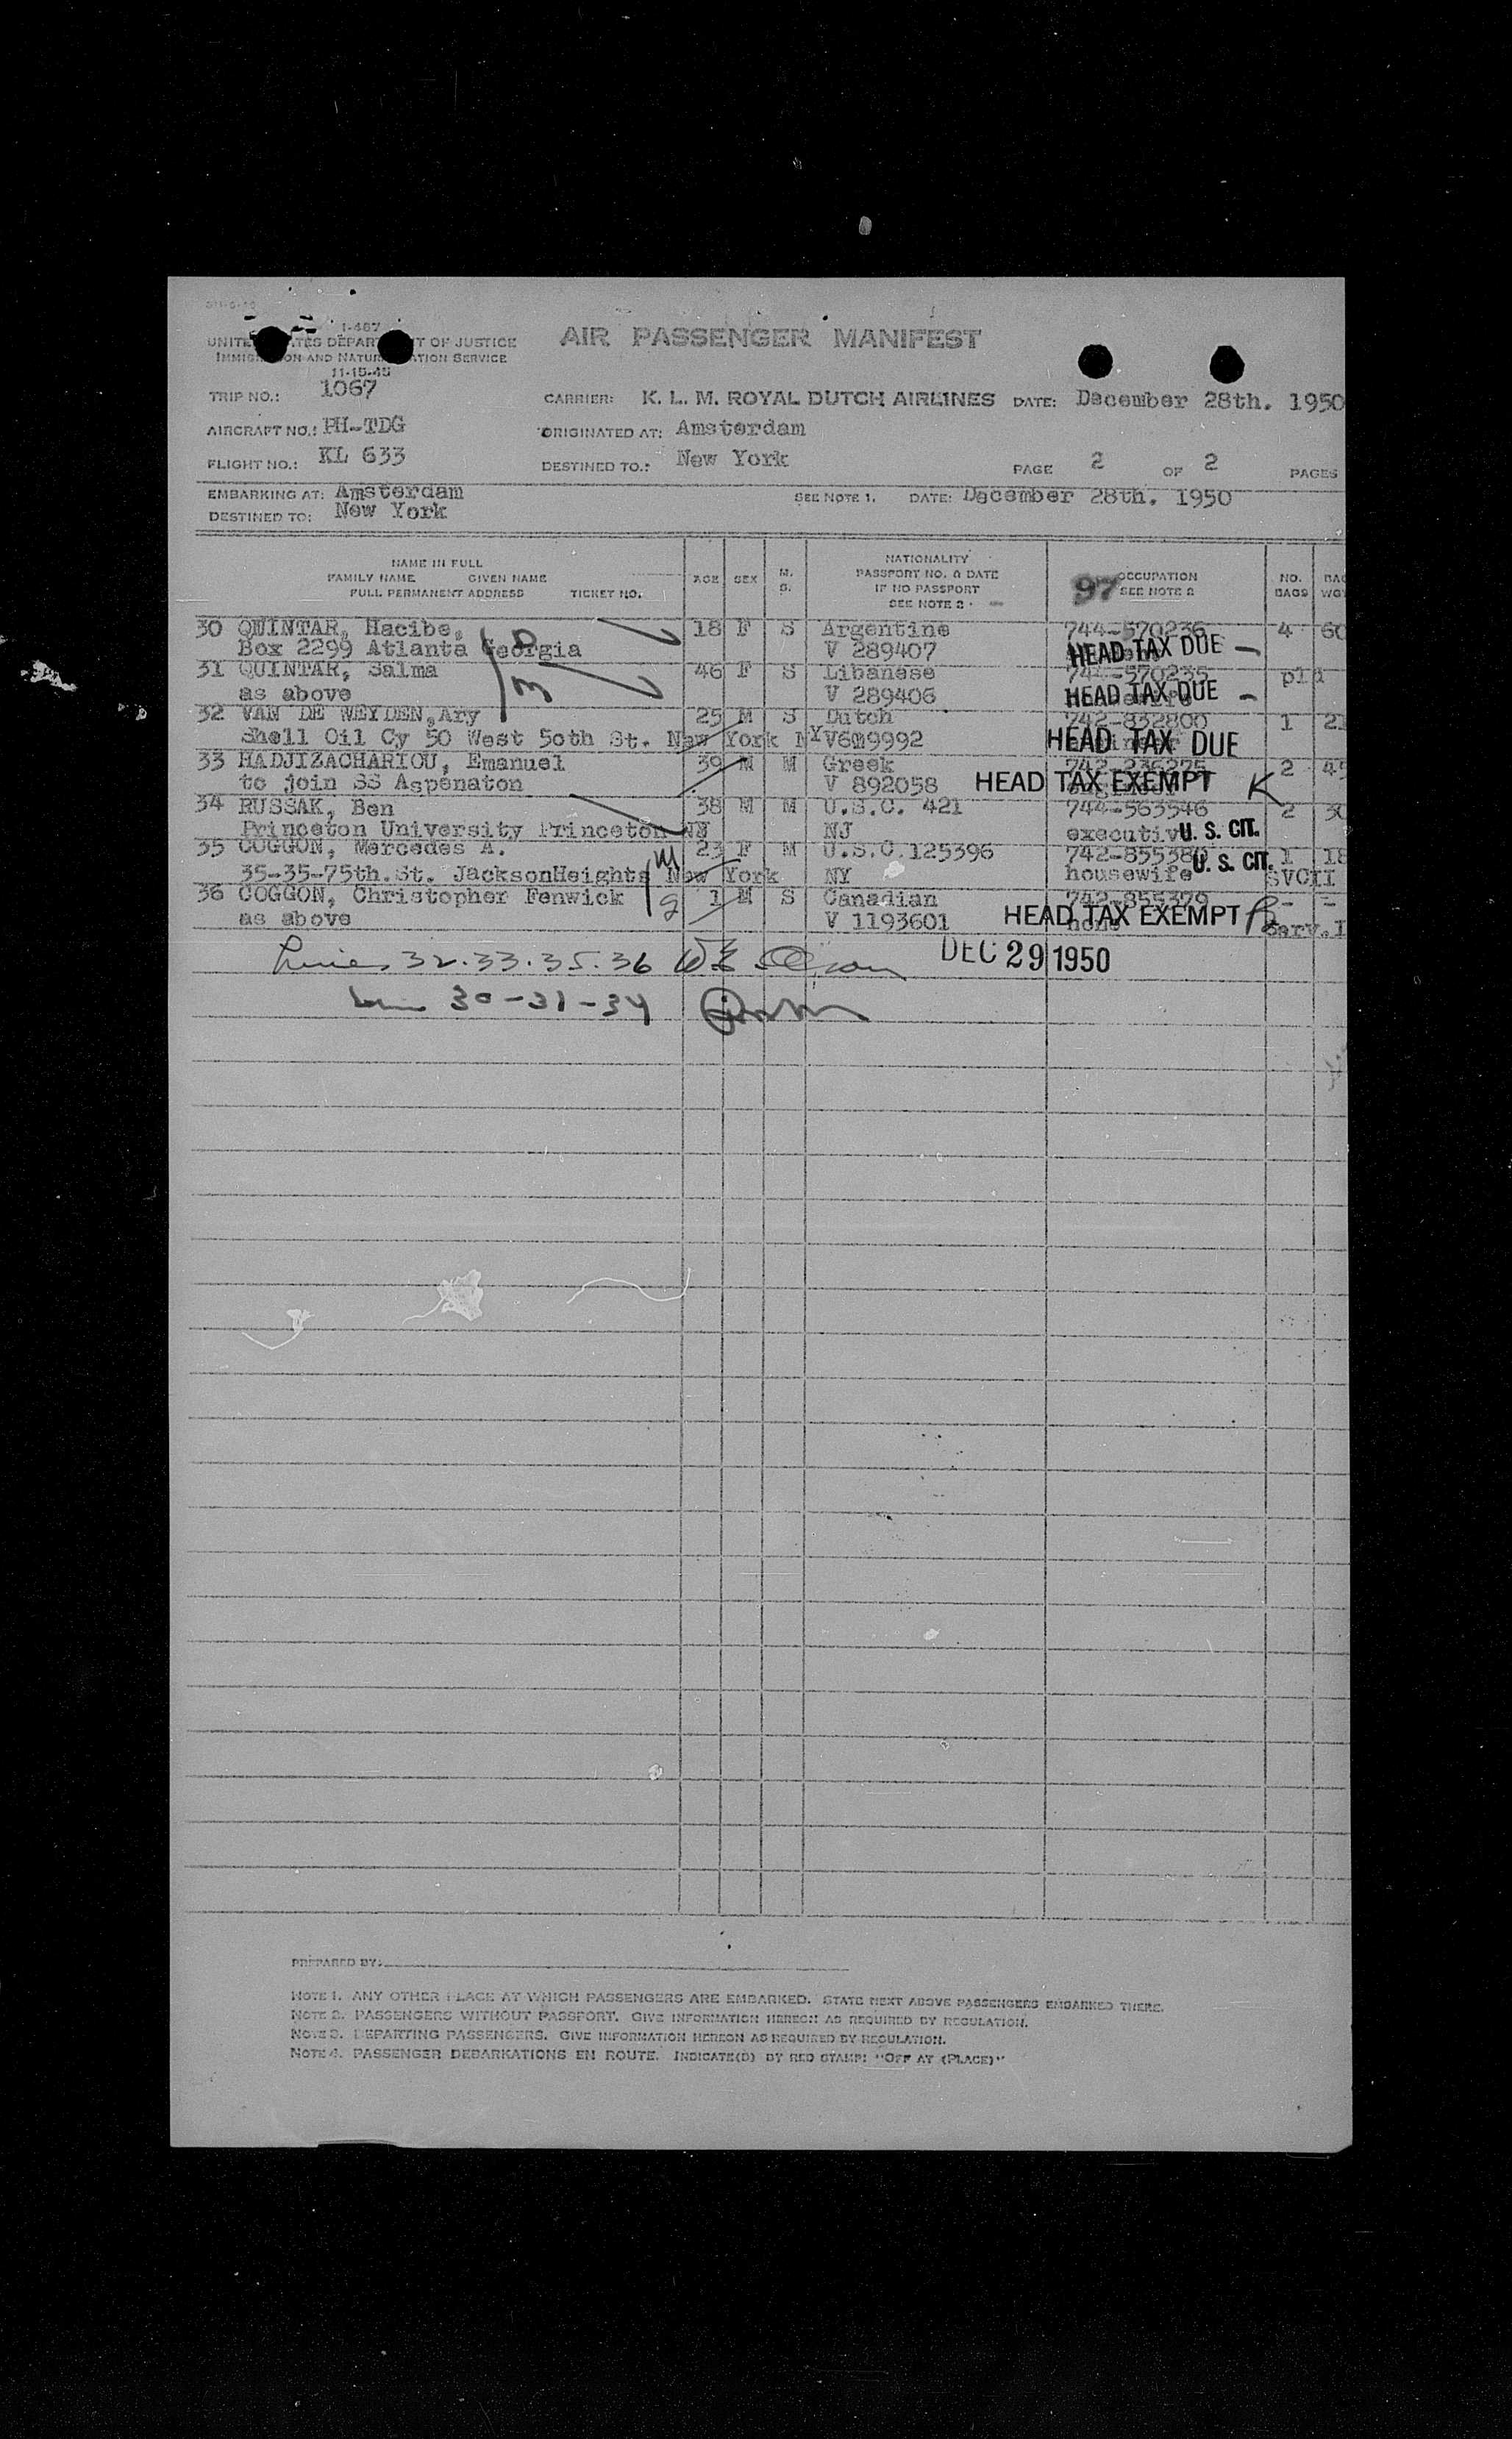 I-487
UNITE ATES DEPART T OF JUSTICE
IMMIG ON AND NATUR ATION SERVICE
11-15-45
AIR PASSENGER MANIFEST
TRIP NO.: 1067
CARRIER: K. L. M. ROYAL DUTCH AIRLINES DATE: December 28th. 1950
AIRCRAFT NO.: PH-TDG
ORIGINATED AT: Amsterdam
FLIGHT NO.: KL 633
DESTINED TO.: New York
PAGE 2 OF 2 PAGES
EMBARKING AT: Amsterdam
SEE NOTE 1. DATE: December 28th. 1950
DESTINED TO: New York
NAME IN FULL
FAMILY NAME GIVEN NAME
FULL PERMANENT ADDRESS TICKET NO.
AGE SEX M. S.
NATIONALITY
PASSPORT NO. & DATE
IF NO PASSPORT
SEE NOTE 2
97 OCCUPATION
SEE NOTE 2
NO. BAGS
BAG WGT
30 QUINTAR, Hacibe, 18 F S Argentine 744-570236 4 60
Box 2299 Atlanta Georgia V 289407 HEAD TAX DUE
31 QUINTAR, Salma 46 F S Libanese 744-570235 pld
as above V 289406 HEAD TAX DUE
32 VAN DE WEYDEN, Ary 25 M S Dutch 742-832800 1 21
Shell Oil Cy 50 West 50th St. New York NY HEAD TAX DUE
33 HADJIZACHARIOU, Emanuel 39 M M Greek 742-236275 2 45
to join SS Aspenaton V 892058 HEAD TAX EXEMPT K
34 RUSSAK, Ben 38 M M U.S.C. 421 744-563546 2 30
Princeton University Princeton NJ NJ executive U. S. CIT.
35 COGGON, Mercedes A. 23 F M U.S.C.125396 742-855380 1 18
35-35-75th.St. JacksonHeights New York NY housewife U. S. CIT. SVCII
36 COGGON, Christopher Fenwick 1 M S Canadian 742-855379 - -
as above V 1193601 none HEAD TAX EXEMPT Serv.I
Lines 32.33.35.36
DEC 29 1950
30-31-34
PREPARED BY:
NOTE 1. ANY OTHER PLACE AT WHICH PASSENGERS ARE EMBARKED. STATE NEXT ABOVE PASSENGERS EMBARKED THERE.
NOTE 2. PASSENGERS WITHOUT PASSPORT. GIVE INFORMATION HEREON AS REQUIRED BY REGULATION.
NOTE 3. DEPARTING PASSENGERS. GIVE INFORMATION HEREON AS REQUIRED BY REGULATION.
NOTE 4. PASSENGER DEBARKATIONS EN ROUTE. INDICATE(D) BY RED STAMP: "OFF AT (PLACE)"